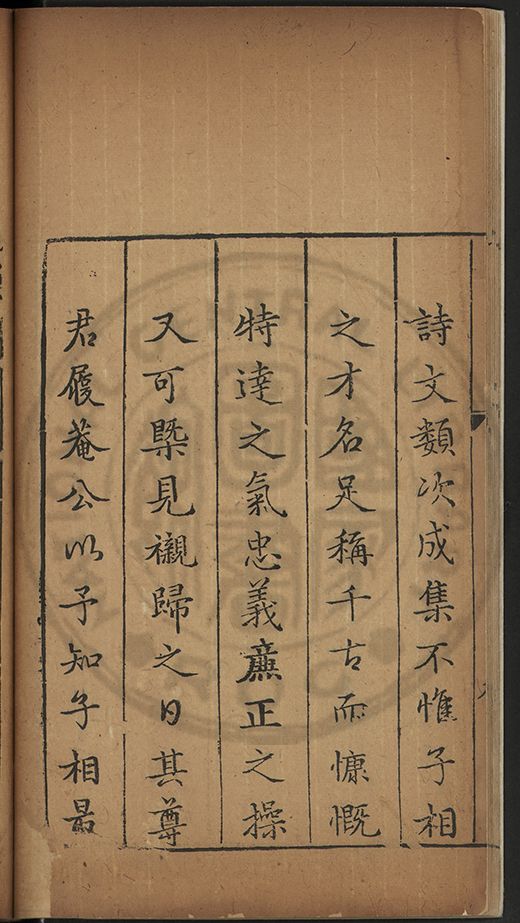 詩文類次成集不惟子相
之才名足稱千古而慷慨
特達之氣忠義廉正之操
又可槩見襯歸之日其尊
君履菴公以予知子相最